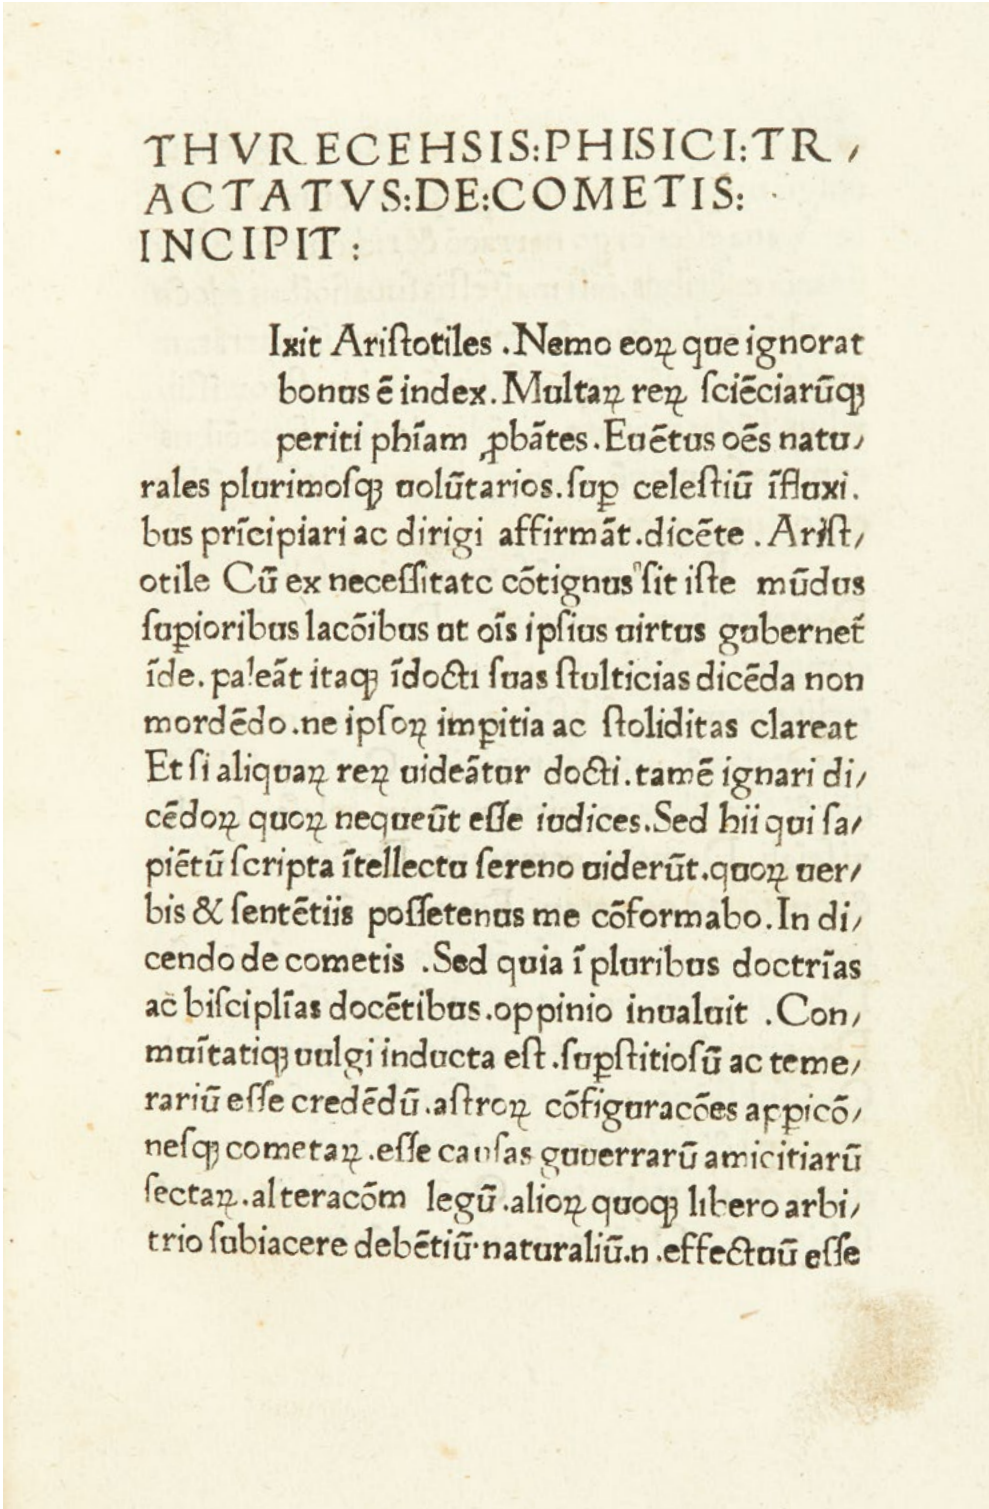 THVRECEHSIS:PHISICI:TR/
ACTATVS:DE:COMETIS:
INCIPIT:
Ixit Ariſtotiles .Nemo eoꝝ que ignorat
bonus ē index. Multaꝝ reꝝ ſciēciarūqꝫ
periti phīam ꝓbātes. Euētus oēs natu/
rales plurimoſqꝫ uolūtarios. ſuꝑ celeſtiū īfluxi.
bus prīcipiari ac dirigi affirmāt. dicēte . Ariſt/
otile Cū ex neceſſitatc cōtignus ſit iſte mūdus
ſuꝑioribus lacōibus ut oīs ipſius uirtus gubernet᷑
īde. paleāt itaqꝫ īdocti ſuas ſtulticias dicēda non
mordēdo .ne ipſoꝝ imꝑitia ac ſtoliditas clareat
Et ſi aliquaꝝ reꝝ uideātur docti. tamē ignari di/
cēdoꝝ quoꝝ nequeūt eſſe iudices. Sed hii qui ſa/
piētū ſcripta ītellectu ſereno uiderūt. quoꝝ uer/
bis & ſentētiis poſſetenus me cōformabo. In di/
cendo de cometis . Sed quia ī pluribus doctrīas
ac biſciplīas docētibus. oppinio inualuit . Con/
muītatiqꝫ uulgi inducta eſt . ſuꝑſtitioſū ac teme/
rariū eſſe credēdū. aſtroꝝ cōfiguracōes aꝑpicō/
neſqꝫ cometaꝝ . eſſe cauſas guuerrarū amicitiarū
ſectaꝝ. alteracōm legū . alioꝝ quoqꝫ libero arbi/
trio ſubiacere debētiū· naturaliū.n .effectuū eſſe